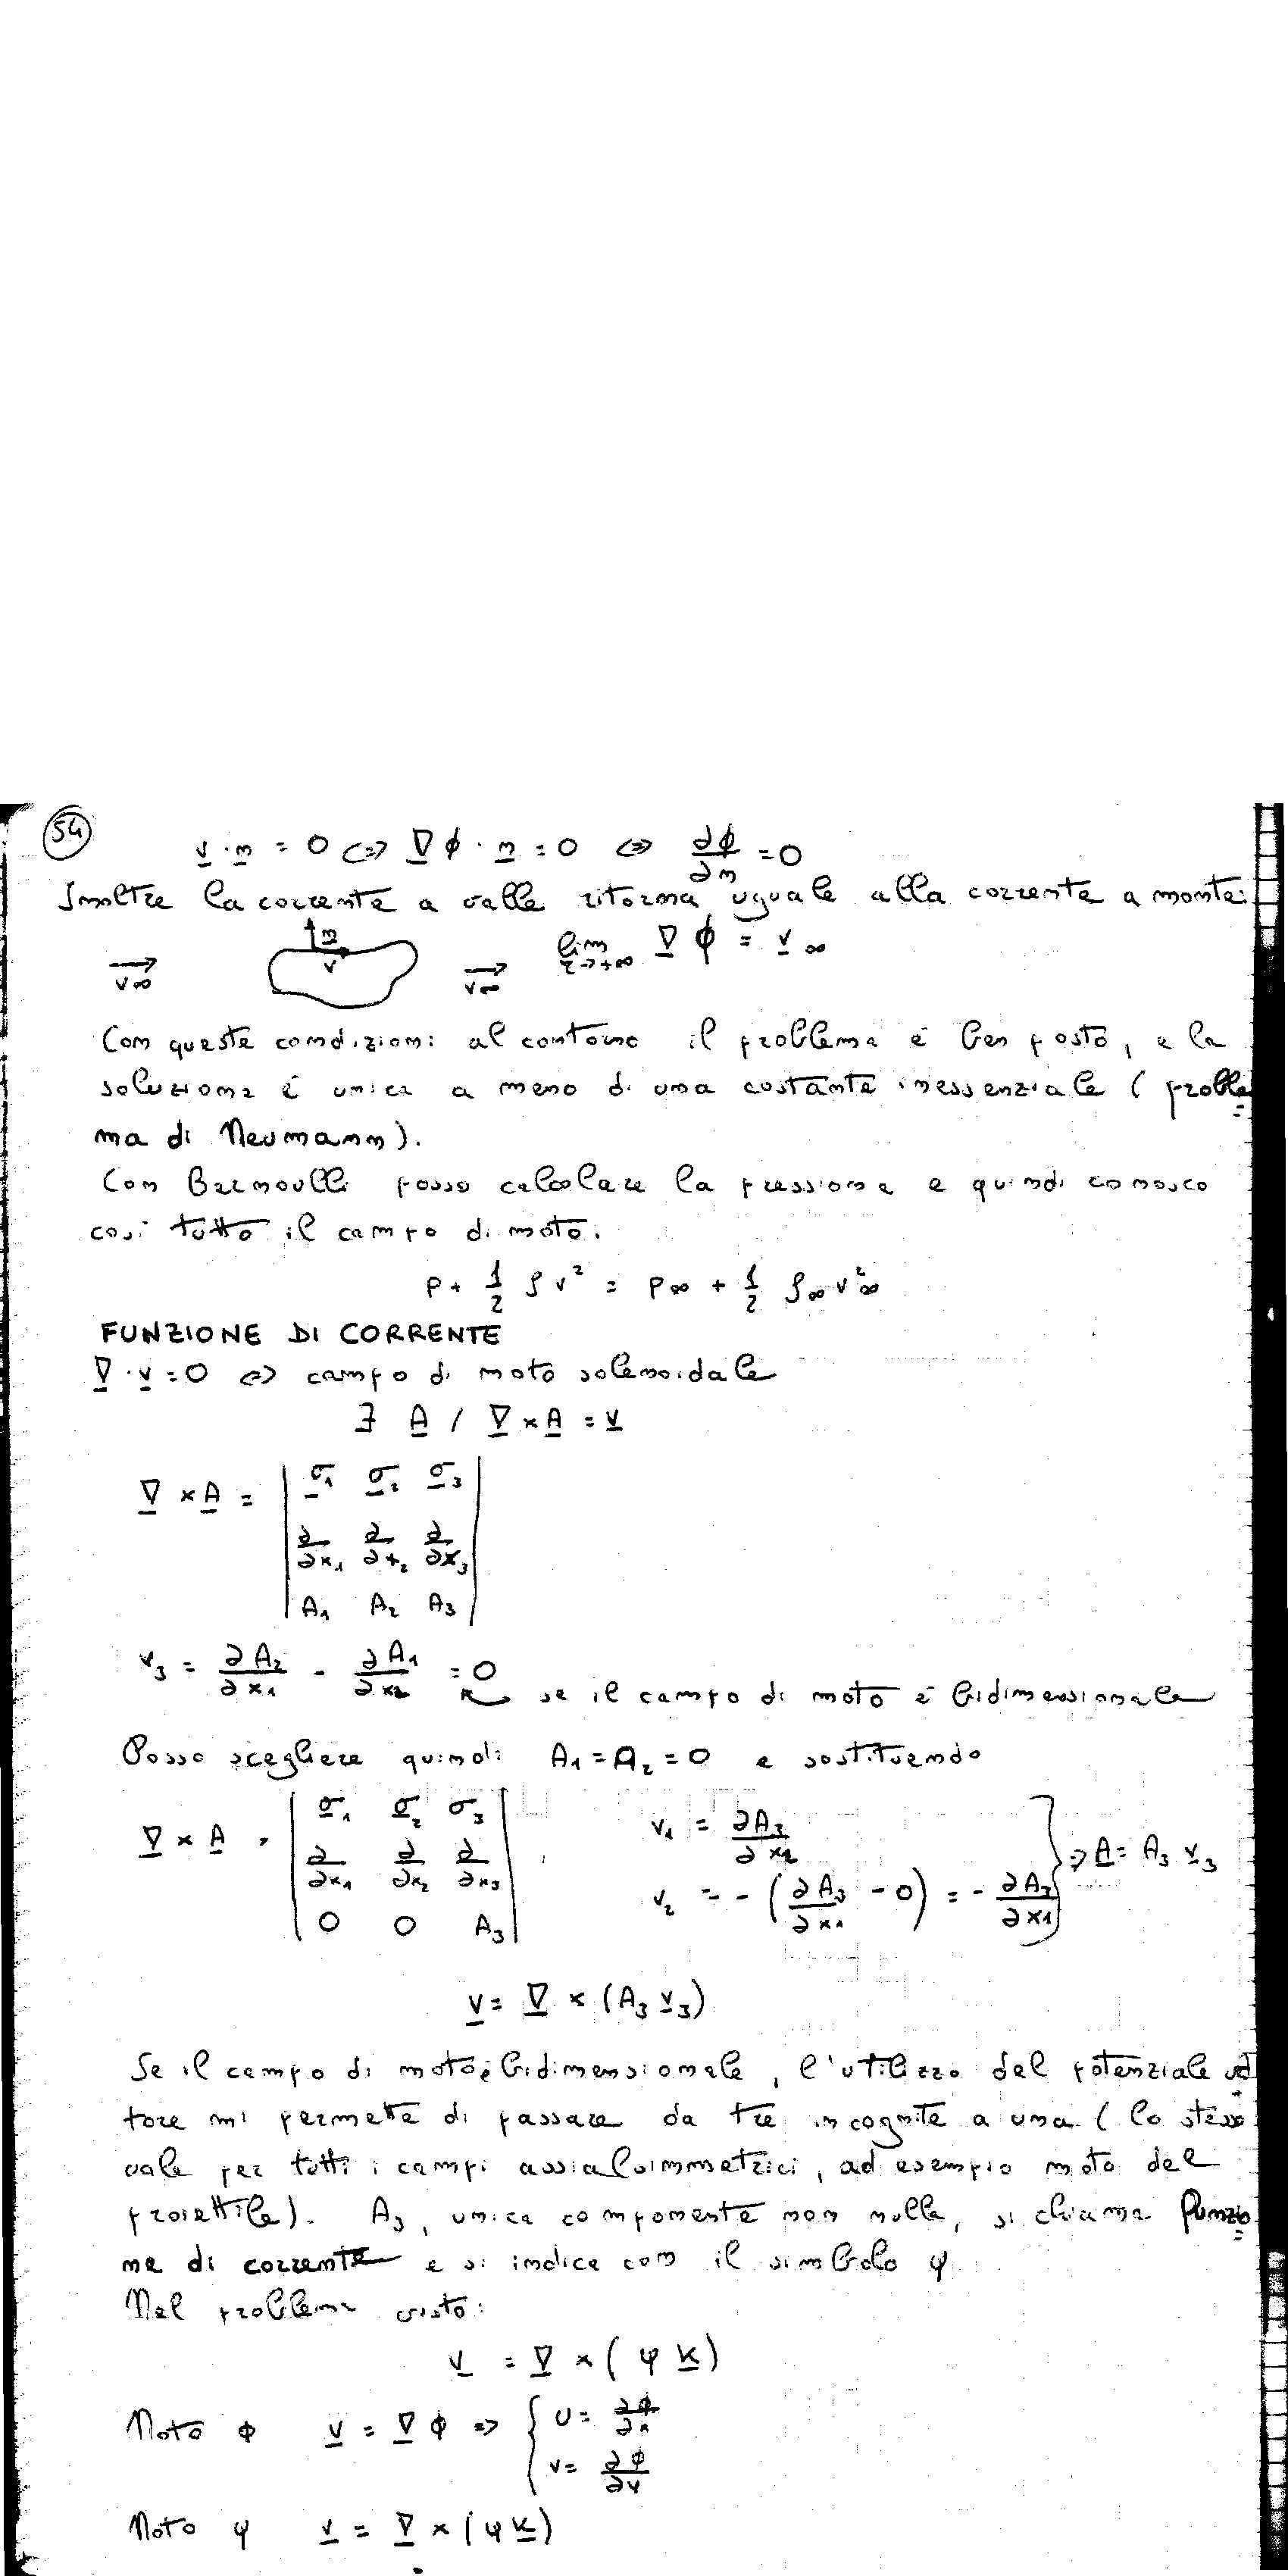 54
v · n = 0 <=> ∇ϕ · n = 0 <=> ∂ϕ/∂n = 0
Inoltre la corrente a valle ritorna uguale alla corrente a monte:
n
v∞ v v∞ lim r→+∞ ∇ϕ = v∞
Con queste condizioni al contorno il problema è ben posto, e la
soluzione è unica a meno di una costante inessenziale (proble
ma di Neumann).
Con Bernoulli posso calcolare la pressione e quindi conosco
così tutto il campo di moto.
p + 1/2 ρ v² = p∞ + 1/2 ρ∞ v²∞
FUNZIONE DI CORRENTE
∇ · v = 0 <=> campo di moto solenoidale
∃ A / ∇ × A = v
∇ × A = | σ1 σ2 σ3 |
| ∂/∂x1 ∂/∂x2 ∂/∂x3 |
| A1 A2 A3 |
v3 = ∂A2/∂x1 - ∂A1/∂x2 = 0
se il campo di moto è bidimensionale
Posso scegliere quindi A1 = A2 = 0 e sostituendo
∇ × A = | σ1 σ2 σ3 | v1 = ∂A3/∂x2
| ∂/∂x1 ∂/∂x2 ∂/∂x3 | } => A = A3 v3
| 0 0 A3 | v2 = - (∂A3/∂x1 - 0) = - ∂A3/∂x1
v = ∇ × (A3 v3)
Se il campo di moto è bidimensionale, l'utilizzo del potenziale vet
tore mi permette di passare da tre incognite a una (lo stesso
vale per tutti i campi assialsimmetrici, ad esempio moto del
proiettile). A3, unica componente non nulla, si chiama funzio
ne di corrente e si indica con il simbolo ψ
Nel problema visto:
v = ∇ × (ψ k)
Noto ϕ v = ∇ϕ => { u = ∂ϕ/∂x
v = ∂ϕ/∂y
Noto ψ v = ∇ × (ψ k)